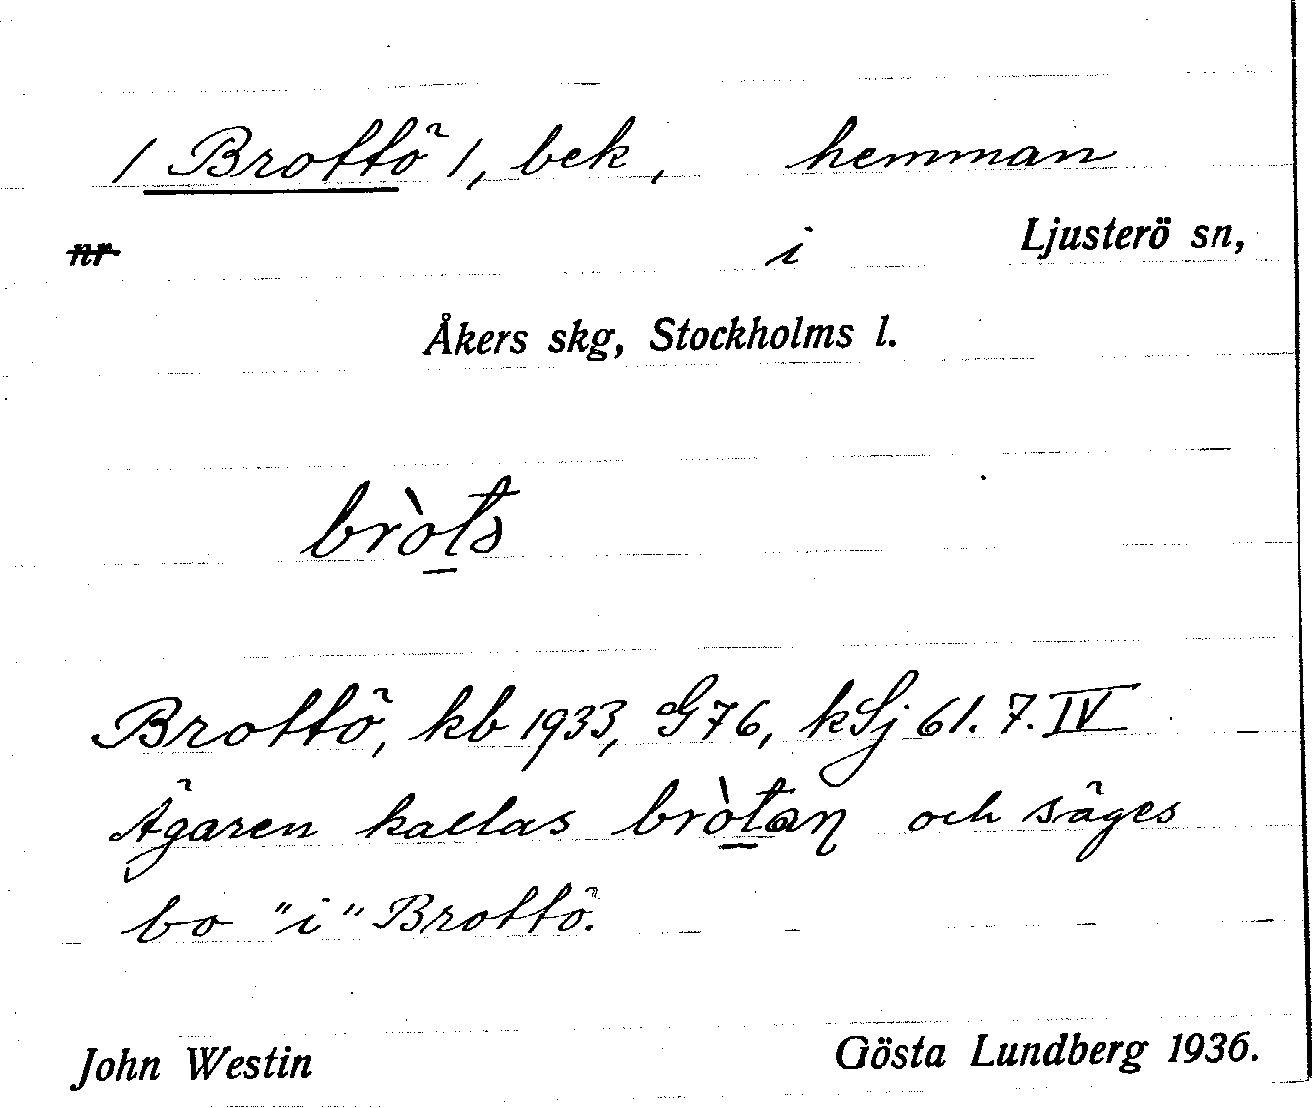 / Brottö /, bek, hemman
nr i Ljusterö sn,
Åkers skg, Stockholms l.
Brottö, kb 1933, G76, kSj 61. 7. IV
Ägaren kallas och säges
bo "i" Brottö.
John Westin Gösta Lundberg 1936.